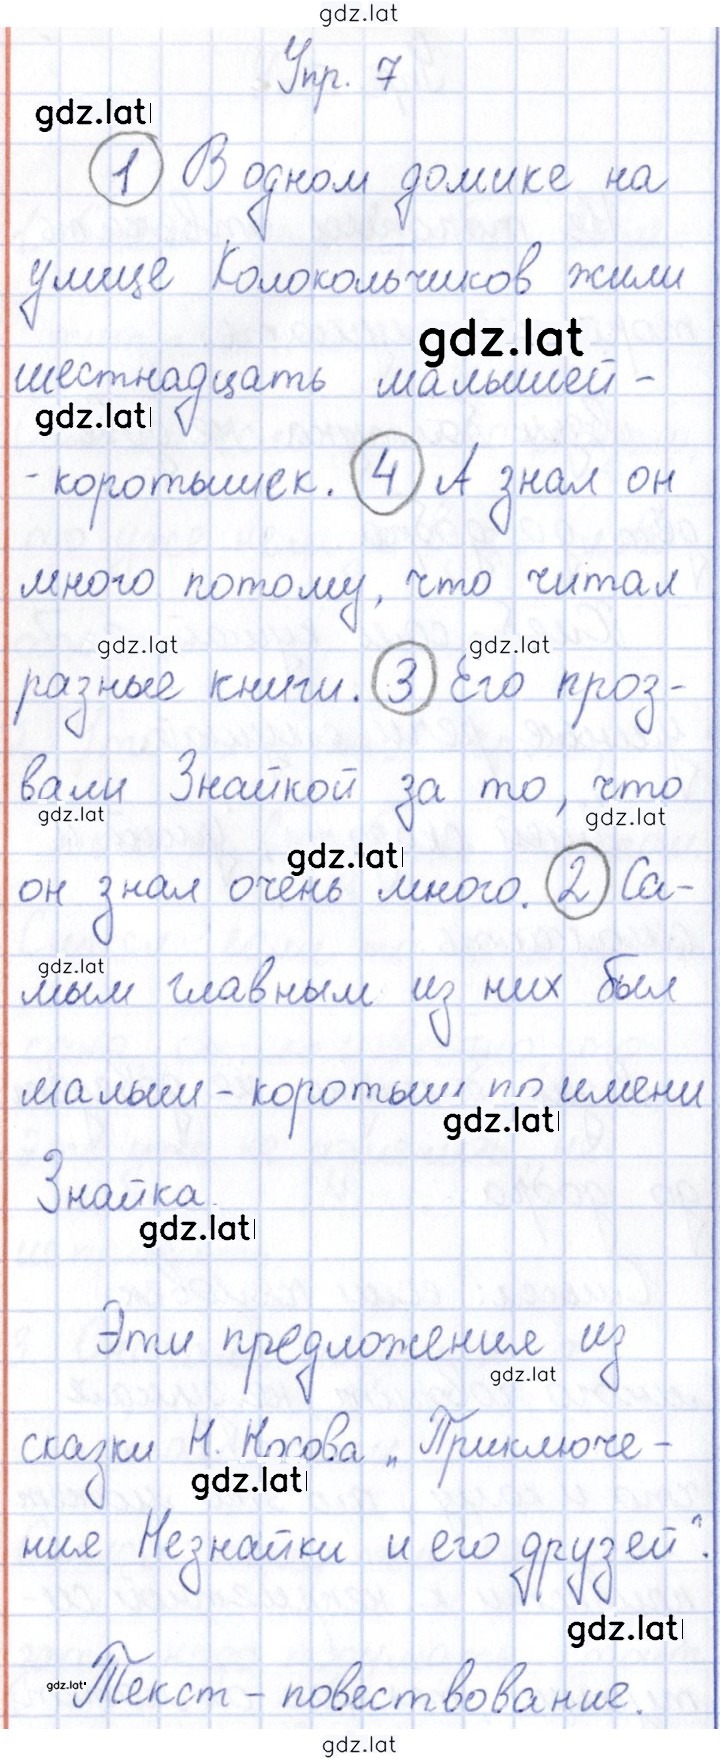 gdz.lat
Упр. 7
gdz.lat
1 В одном домике на
улице Колокольчиков жили
gdz.lat
шестнадцать малышей-
gdz.lat
-коротышек. 4 А знал он
много потому, что читал
gdz.lat gdz.lat
разные книги. 3 Его проз-
вали Знайкой за то, что
gdz.lat gdz.lat
gdz.lat
он знал очень много. 2 Са-
gdz.lat
мым главным из них был
малыш-коротыш по имени
gdz.lat
Знайка.
gdz.lat
Эти предложения из
gdz.lat
сказки Н. Носова „Приключе-
gdz.lat
ние Незнайки и его друзей".
gdz.lat
gdz.lat
Текст-повествование.
gdz.lat